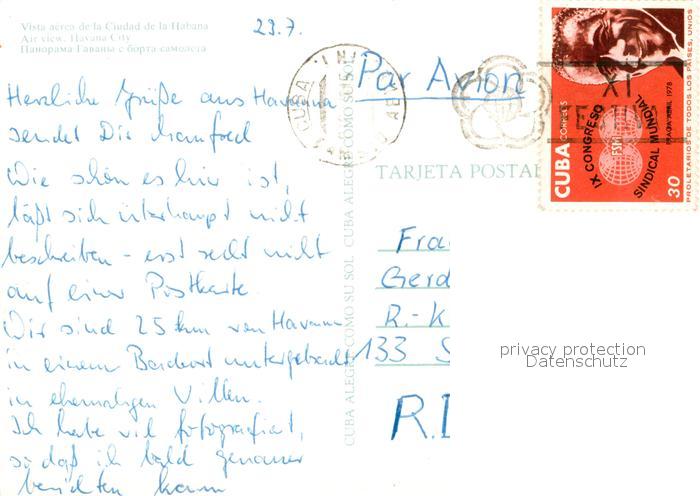 Vista aérea de la Ciudad de la Habana
Air view, Havana City
Панорама Гаваны с борта самолета
23.7.
Herzliche Grüße aus Havanna
sendet Dir Manfred
Wie schön es hier ist,
läßt sich überhaupt nicht
beschreiben - erst recht nicht
auf einer Postkarte.
Wir sind 25 km von Havanna
in einem Badeort untergebracht
in ehemaligen Villen.
Ich habe viel fotografiert,
so daß ich bald genauer
berichten kann
CUBA ALEGRE COMO SU SOL CUBA ALEGRE COMO SU SOL
Par Avion
TARJETA POSTAL
Fra
Gerd
R.-K
133 S
R.D
CUBA
XI
CUBA CORREOS
IX CONGRESO
SINDICAL MUNDIAL
FSM
PRAGA ABRIL 1978
30
PROLETARIOS DE TODOS LOS PAISES, UNIOS
privacy protection
Datenschutz